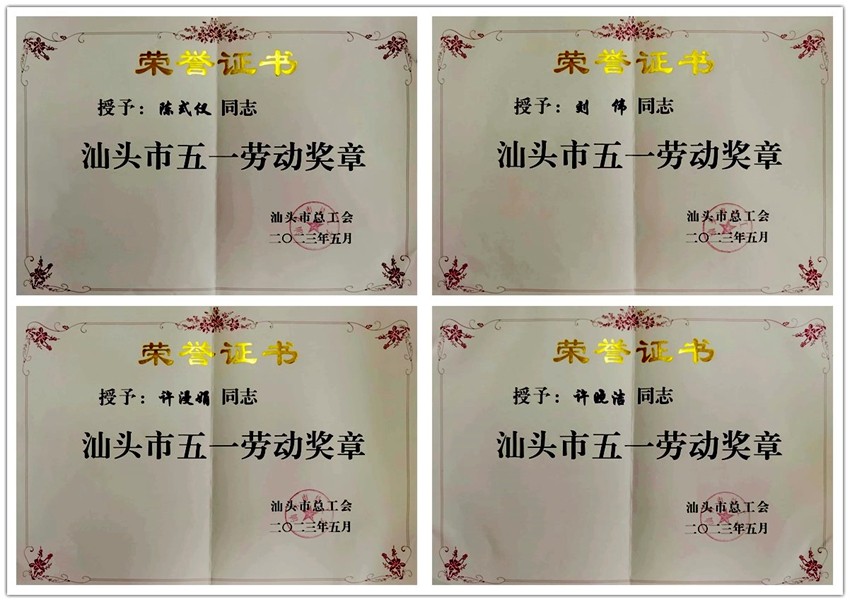 荣誉证书
授予：陈式仪 同志
汕头市五一劳动奖章
汕头市总工会
二〇二三年五月
荣誉证书
授予：刘 伟 同志
汕头市五一劳动奖章
汕头市总工会
二〇二三年五月
荣誉证书
授予：许漫娟 同志
汕头市五一劳动奖章
汕头市总工会
二〇二三年五月
荣誉证书
授予：许晓洁 同志
汕头市五一劳动奖章
汕头市总工会
二〇二三年五月